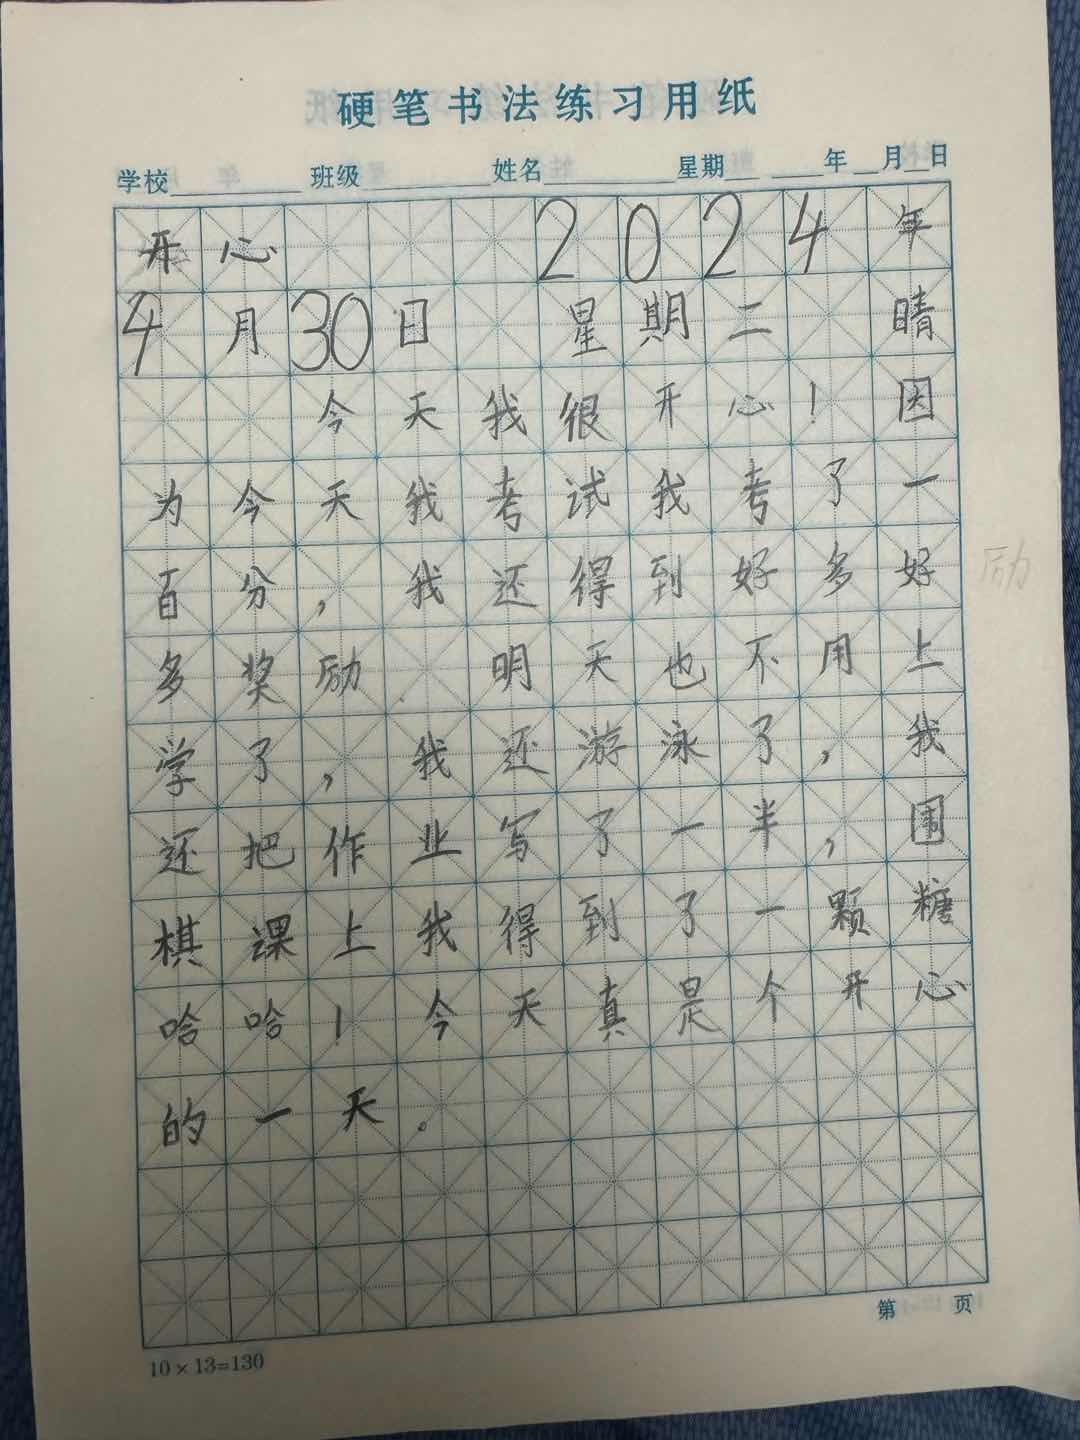 硬笔书法练习用纸
学校 班级 姓名 星期 年 月 日
开心 2024年
4月30日 星期二 晴
今天我很开心！因
为今天我考试我考了一
百分，我还得到好多好
多奖励 明天也不用上
学了，我还游泳了，我
还把作业写了一半，围
棋课上我得到了一颗糖
哈哈！今天真是个开心
的一天。
励
第 页
10×13=130